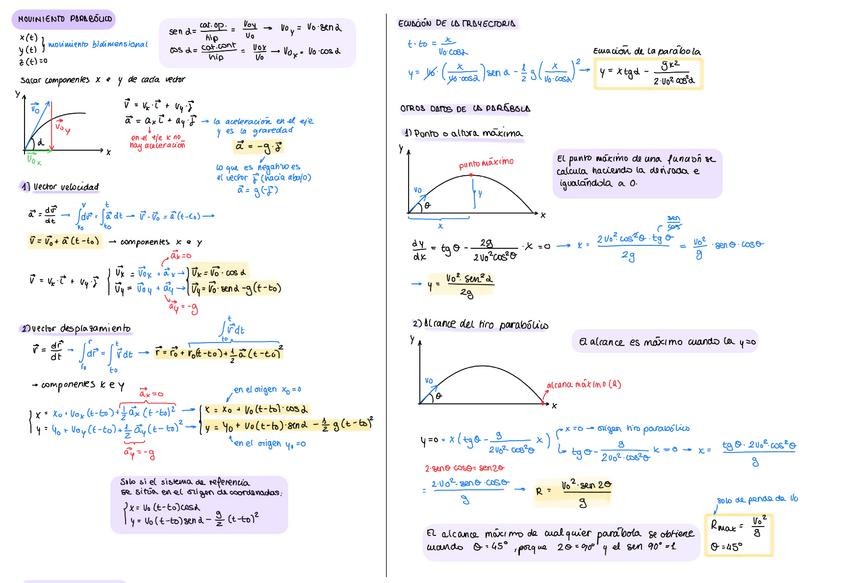 MOVIMIENTO PARABÓLICO
x(t)
y(t) } movimiento bidimensional
z(t)=0
sen α = cat.op. / hip = v₀y / v₀ → v₀y = v₀·sen α
cos α = cat.cont / hip = v₀x / v₀ → v₀x = v₀·cos α
Sacar componentes x e y de cada vector
y
v⃗₀
v⃗₀y
α
v⃗₀x
x
v⃗ = vₓ·i⃗ + vᵧ·j⃗
a⃗ = aₓ i⃗ + aᵧ·j⃗ → la aceleración en el eje
y es la gravedad
en el eje x no
hay aceleración
a⃗ = -g·j⃗
lo que es negativo es
el vector j⃗ (hacia abajo)
a⃗ = g(-j⃗)
1) Vector velocidad
a⃗ = dv⃗/dt → ∫dv⃗ = ∫a⃗ dt → v⃗-v⃗₀ = a⃗(t-t₀) →
v⃗ = v⃗₀ + a⃗(t-t₀) → componentes x e y
a⃗ₓ=0
v⃗ = vₓ·i⃗ + vᵧ·j⃗ { v⃗ₓ = v⃗₀ₓ + a⃗ₓ → v⃗ₓ = v⃗₀·cos α
v⃗ᵧ = v⃗₀ᵧ + a⃗ᵧ → v⃗ᵧ = v⃗₀·sen α - g(t-t₀)
a⃗ᵧ=-g
2) vector desplazamiento
∫v⃗dt
v⃗ = dr⃗/dt → ∫dr⃗ = ∫v⃗dt → r⃗ = r⃗₀ + v₀(t-t₀) + 1/2 a⃗(t-t₀)²
→ componentes x e y
a⃗ₓ=0
en el origen x₀=0
{ x = x₀ + v₀ₓ(t-t₀) + 1/2 a⃗ₓ(t-t₀)² → { x = x₀ + v₀(t-t₀)·cos α
y = y₀ + v₀ᵧ(t-t₀) + 1/2 a⃗ᵧ(t-t₀)² → y = y₀ + v₀(t-t₀)·sen α - 1/2 g(t-t₀)²
a⃗ᵧ=-g
en el origen y₀=0
Solo si el sistema de referencia
se sitúa en el origen de coordenadas:
{ x = v₀(t-t₀)cos α
y = v₀(t-t₀)sen α - g/2 (t-t₀)²
ECUACIÓN DE LA TRAYECTORIA
t-t₀ = x / v₀·cos α
y = v₀·(x / v₀·cos α) sen α - 1/2 g (x / v₀·cos α)² →
Ecuación de la parábola
y = x tg α - gx² / 2·v₀²cos²α
OTROS DATOS DE LA PARÁBOLA
1) Punto o altura máxima
y
punto máximo
v₀
θ
y
x
x
El punto máximo de una función se
calcula haciendo la derivada e
igualándola a 0.
sen / cos
dy/dx = tg θ - 2g / 2v₀²cos²θ · x = 0 → x = 2v₀²cos²θ·tg θ / 2g = v₀²/g · sen θ·cos θ
→ y = v₀²·sen²α / 2g
2) Alcance del tiro parabólico
El alcance es máximo cuando la y=0
y
v₀
θ
alcance máximo (R)
x
x=0 → origen tiro parabólico
y=0 = x (tg θ - g / 2v₀²·cos²θ x)
tg θ - g / 2v₀²·cos²θ x = 0 → x = tg θ·2v₀²·cos²θ / g
2·sen θ cos θ = sen 2θ
= 2·v₀²·sen θ·cos θ / g → R = v₀²·sen 2θ / g
solo depende de v₀
Rmax = v₀²/g
θ=45°
El alcance máximo de cualquier parábola se obtiene
cuando θ=45°, porque 2θ=90° y el sen 90°=1